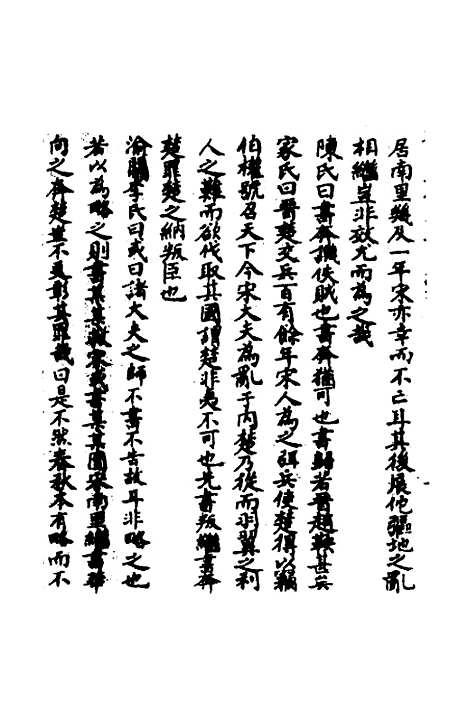 居南里幾及一年宋亦幸而不亡耳其後辰佗彊地之亂
相繼豈非效尤而為之哉
陳氏曰書奔譏佚賊也書奔猶可也書歸若晉趙鞅甚矣
家氏曰晉楚交兵百有餘年宋人為之弭兵使楚得以竊
伯權號召天下今宋大夫為亂于內楚乃從而羽翼之利
人之難而欲伐取其國謂楚非夷不可也先書叛繼書奔
楚罪楚之納叛臣也
渝關李氏曰或曰諸大夫之師不書不告故耳非略之也
若以為略之則書某某救宋或書某某圍宋南里繼書華
向之奔楚豈不更彰其罪哉曰是不然春秋本有略而不